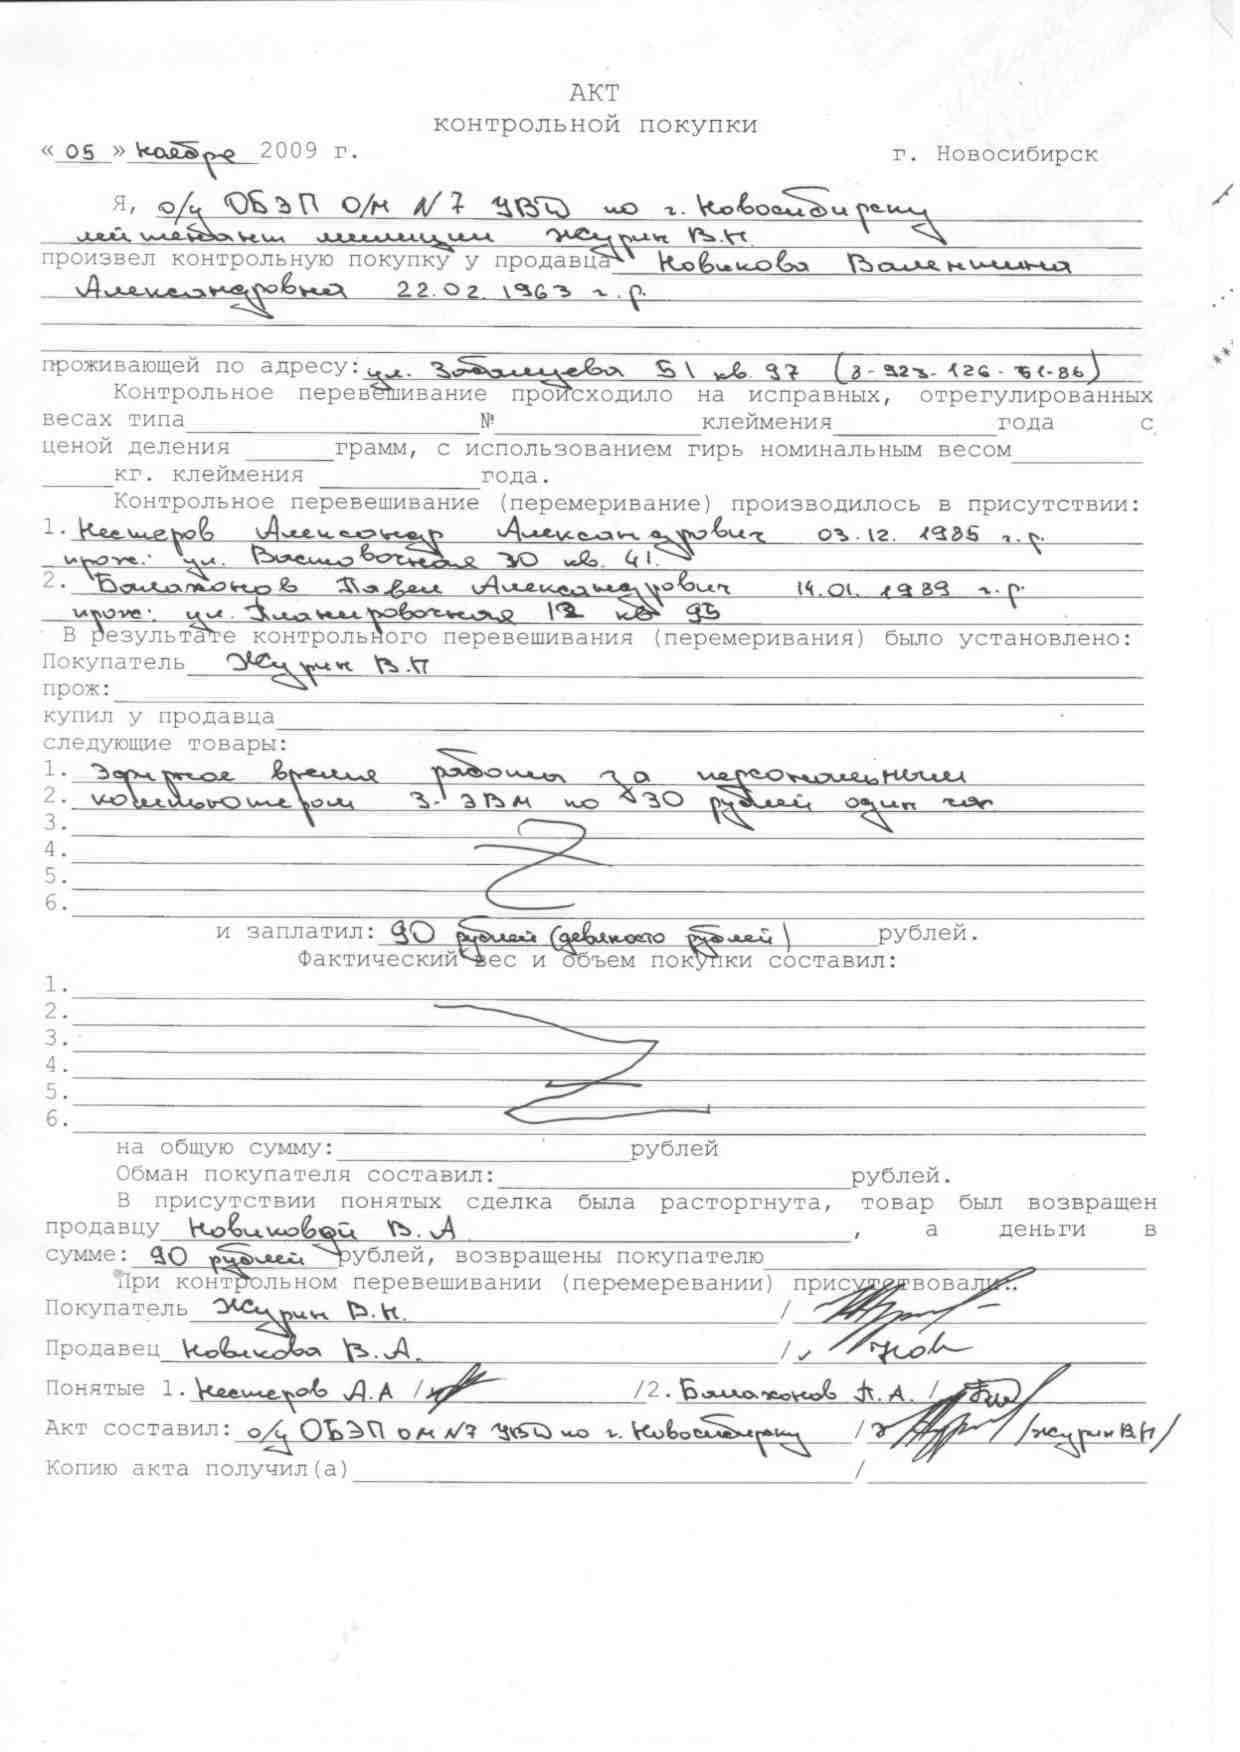 АКТ
контрольной покупки
« 05 » ноября 2009 г. г. Новосибирск
Я, о/у ОБЭП О/М N 7 УВД по г. Новосибирску
лейтенант милиции Журин В.Н.
произвел контрольную покупку у продавца Новикова Валентина
Александровна 22.02.1963 г.р.
проживающей по адресу: ул. 51 кв. 97 (8-923-126-51-86)
Контрольное перевешивание происходило на исправных, отрегулированных
весах типа № клеймения года с
ценой деления грамм, с использованием гирь номинальным весом
кг. клеймения года.
Контрольное перевешивание (перемеривание) производилось в присутствии:
1. Нестеров Александр Александрович 03.12.1985 г.р.
прож: ул. Восточная 30 кв. 41.
2. Балахонов Павел Александрович 14.01.1989 г.р.
прож: ул. Планировочная 12 кв 95
В результате контрольного перевешивания (перемеривания) было установлено:
Покупатель Журин В.Н
прож:
купил у продавца
следующие товары:
1. Эфирное время работы за персональным
2. компьютером 3- ЭВМ по 30 рублей один час
3.
4.
5.
6.
и заплатил: 90 рублей (девяносто рублей) рублей.
Фактический вес и объем покупки составил:
1.
2.
3.
4.
5.
6.
на общую сумму: рублей
Обман покупателя составил: рублей.
В присутствии понятых сделка была расторгнута, товар был возвращен
продавцу Новиковой В.А , а деньги в
сумме: 90 рублей рублей, возвращены покупателю
При контрольном перевешивании (перемеревании) присутствовали:
Покупатель Журин В.Н. /
Продавец Новикова В.А. / Нов
Понятые 1. Нестеров А.А / /2. Балахонов П.А. /
Акт составил: о/у ОБЭП ОМ N7 УВД по г. Новосибирску / /Журин В.Н/
Копию акта получил(а) /